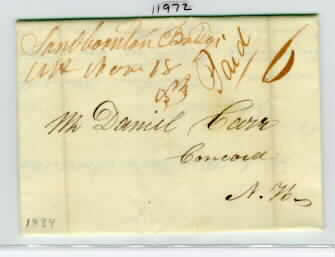 11972
Sandbornton Bridge
NH Nov 18
Paid 6
Mr Daniel Carr
Concord
N. H.
1834